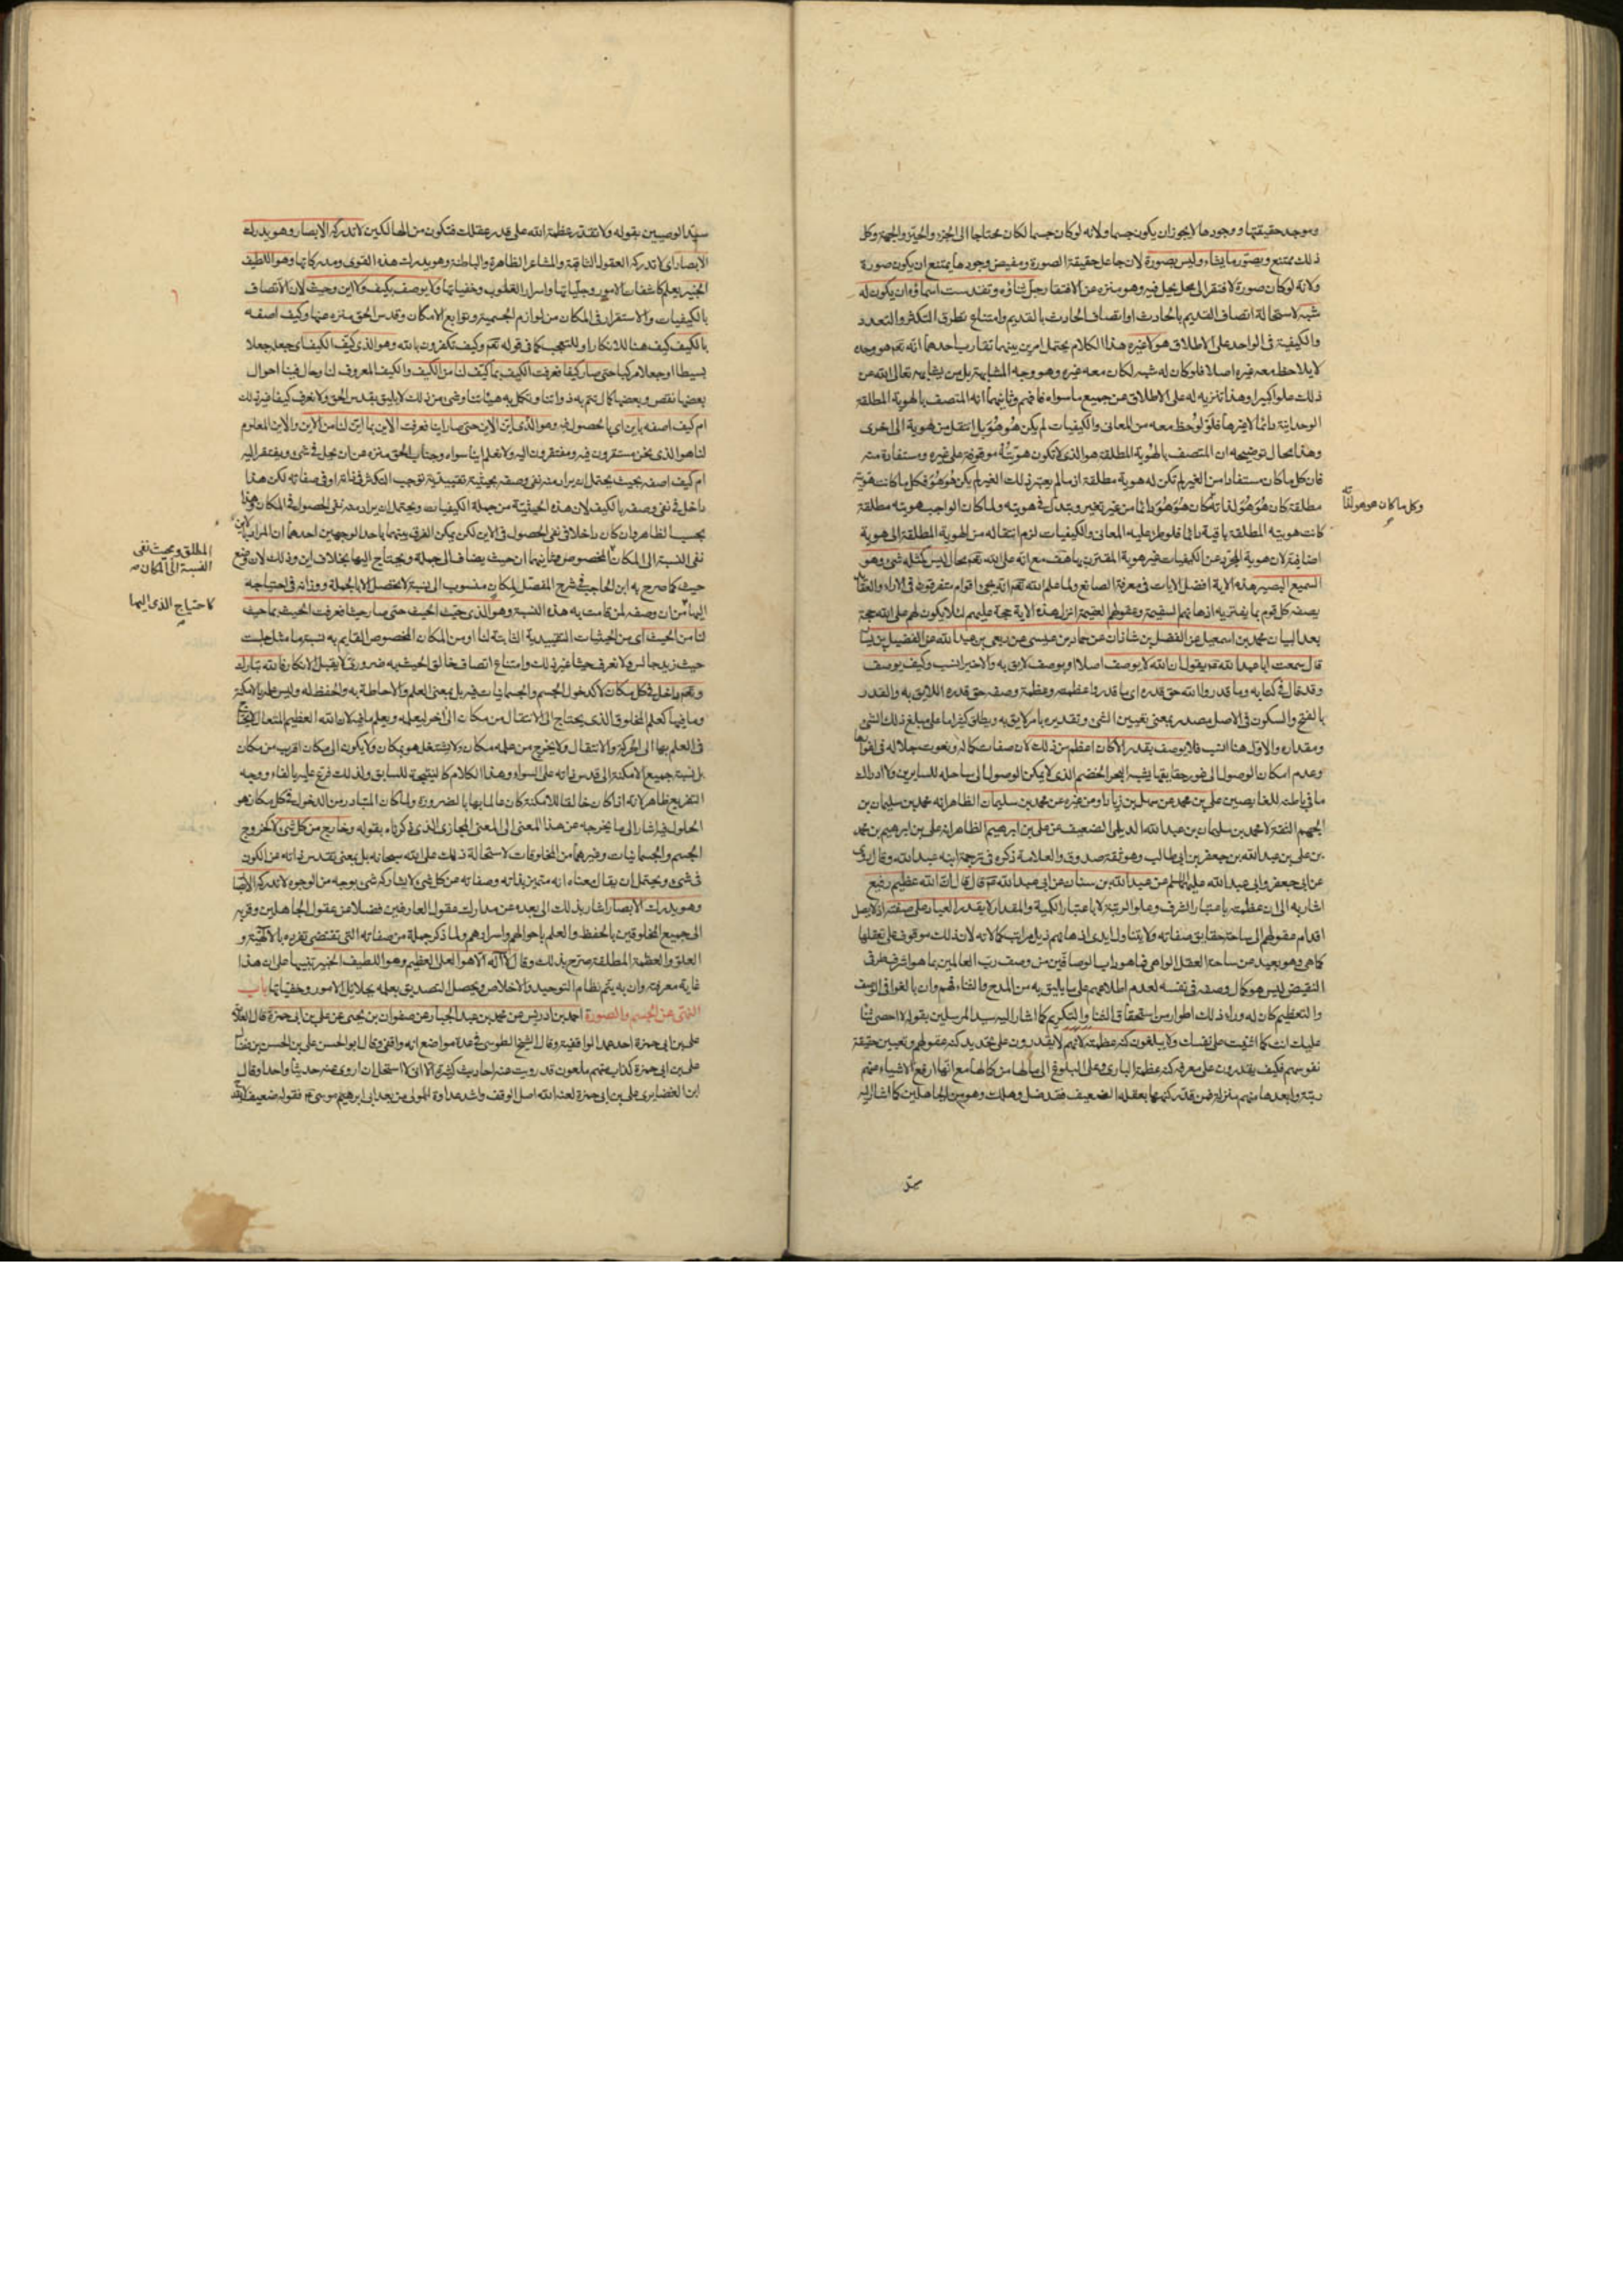 وموجد حقيقتها ووجودها لايجوز ان يكون جسما ولانه لو كان جسما لكان محتاجا الى الجزء والحيّز والجهة وكل
ذلك ممتنع ويصوّر ما يشاء وليس بصورة لان جاعل حقيقة الصورة ومفيض وجودها يمتنع ان يكون صورة
ولانه لو كان صورة لافتقر الى محل يحل فيه وهو منزه عن الافتقار جل ثناؤه وتقدست اسماؤه ان يكون له
شبه لاستحالة اتصاف القديم بالحادث او اتصاف الحادث بالقديم وامتناع تطرق التكثر والتعدد
والكيفية فى الواحد على الاطلاق هو لاغيره هذا الكلام يحتمل امرين بينهما تقارب احدهما انه تعم هو وحده
لايلاحظ معه غيره اصلا فلو كان له شبه لكان معه غيره وهو وجه المشابهة بل من يشابهه تعالى الله عن
ذلك علوا كبيرا وهذا تنزيه له على الاطلاق عن جميع ما سواه فافهم وثانيهما انه المتصف بالهوية المطلقة
الوحدانية دائما لاغيرها فلو لوحظ معه من المعانى والكيفيات لم يكن هُوَ هُوَ بل انتقل من هوية الى اخرى
وهذا محال توضيحه ان المتصف بالهوية المطلقة هو الذى لاتكون هويّته موقوفة على غيره ومستفادة منه
فان كل ما كان مستفادا من الغير لم تكن له هوية مطلقة اذ ما لم يعتبر ذلك الغير لم يكن هو هو فكل ما كانت هويته
مطلقة كان هُوَ هُوَ لذاته كان هُوَ هُوَ دائما من غير تغير وتبدل فى هويته ولما كان الواجب هويته مطلقة
وكل ما كان هو هو لذاته
كانت هويته المطلقة باقية دائما فلو طرء عليه المعانى والكيفيات لزم انتقاله من الهوية المطلقة الى هوية
اضافية لان هوية المجرّد عن الكيفيات غير هوية المقترن بها هف مع انه على الله تعم محال ليس كمثله شئ وهو
السميع البصير هذه الاية افضل الايات فى معرفة الصانع ولما علم الله تعم انه يجئ اقوام متفرقون فى الاراء والعقائد
يصفه كل قوم بما يفتريه اذهانهم السقيمة وعقولهم العقيمة انزل هذه الاية حجة عليهم لئلا يكون لهم على الله حجة
بعد البيان محمد بن اسمعيل عن الفضل بن شاذان عن حماد بن عيسى عن ربعى بن عبد الله عن الفضيل بن يسار
قال سمعت ابا عبد الله عم يقول ان الله لا يوصف اصلا او بوصف لايق به والاخير انسب وكيف يوصف
وقد قال فى كتابه وما قدروا الله حق قدره اى ما قدروا عظمته وعظمة وصفه حق قدره اللايق به والقدر
بالفتح والسكون فى الاصل مصدر بمعنى تعيين الشئ وتقديره بامر لايق به ويطلق كثيرا ما على مبلغ ذلك الشئ
ومقداره والاول هنا انسب فلا يوصف بقدر الا كان اعظم من ذلك لان صفات كماله ونعوت جلاله فى اغوارها
وعدم امكان الوصول الى غور حقايقها يشبه البحر الخضم الذى لا يمكن الوصول الى ساحله للسابرين ولا ادراك
ما فى باطنه للغايصين على بن محمد عن سهل بن زياد او عن غيره عن محمد بن سليمان الظاهر انه محمد بن سليمان بن
الجهم الثقة لا محمد بن سليمان بن عبد الله الديلمى الضعيف عن على بن ابرهيم الظاهر انه على بن ابرهيم بن محمد
بن على بن عبد الله بن جعفر بن ابى طالب وهو ثقة صدوق والعلامة ذكره فى ترجمة ابنه عبد الله وقال روى
عن ابى جعفر وابى عبد الله عليهما السلم عن عبد الله بن سنان عن ابى عبد الله عم قال قال ان الله عظيم رفيع
اشار به الى ان عظمته باعتبار الشرف وعلو الرتبة لا باعتبار الكمية والمقدار لا يقدر العباد على صفته اذ لا يصل
اقدام عقولهم الى ساحة حقايق صفاته ولا يتناول ايدى اذهانهم ذيل مراتب كمالاته لان ذلك موقوف على تعقلها
كما هى وهو بعيد عن ساحة العقل الواهى فما هو داب الوصافين من وصف رب العالمين بما هو اشرف طرفى
النقيض ليس هو كمال وصفه فى نفسه لعدم اطلاعهم على ما يليق به من المدح والثناء فهم وان بالغوا فى الوصف
والتعظيم كان له وراء ذلك اطوار من استحقاق الثناء والتكريم كما اشار اليه سيد المرسلين بقوله لا احصى ثناء
عليك انت كما اثنيت على نفسك ولا يبلغون كنه عظمته لانهم لا يقدرون على تحديد كنه عقولهم وتعيين حقيقة
نفوسهم فكيف يقدرون على معرفة كنه عظمة البارى وعلى البلوغ الى مالها من كمالها مع انها ارفع الاشياء عنهم
رتبة وابعدها منهم منزلة فمن قدّر كنهها بعقله الضعيف فقد ضل وهلك وهو من الجاهلين كما اشار اليه
سيّد الوصيين بقوله ولا تقدّر عظمة الله على قدر عقلك فتكون من الهالكين لا تدركه الابصار وهو يدرك
الابصار اى لا تدركه العقول الثاقبة والمشاعر الظاهرة والباطنة وهو يدرك هذه القوى ومدركاتها وهو اللطيف
الخبير يعلم كاشفات الامور وجليّاتها واسرار القلوب وخفياتها ولا يوصف بكيف ولا اين وحيث لان الاتصاف
بالكيفيات والاستقرار فى المكان من لوازم الجسمية وتوابع الامكان وقدس الحق منزه عنها وكيف اصفه
بالكيف كيف هنا للانكار او للتعجب كما فى قوله تعم وكيف تكفرون بالله وهو الذى كيّف الكيف اى جعله جعلا
بسيطا او جعلا مركبا حتى صار كيفا فعرفت الكيف بما كيّف لنا من الكيف والكيف المعروف لنا وحال فينا احوال
بعضها نقص وبعضها كمال تتم به ذواتنا وتكمل به هيئاتنا وشئ من ذلك لا يليق بقدس الحق ولا نعرف كيفا غير ذلك
ام كيف اصفه باين اى بالحصول فيه وهو الذى ايّن الاين حتى صار اينا فعرفت الاين بما ايّن لنا من الاين والاين المعلوم
لنا هو الذى نحن مستقرون فيه ومفتقرون اليه ولا نعلم اينا سواه وجناب الحق منزه عن ان يحل فى شئ ويفتقر اليه
ام كيف اصفه بحيث يحتمل ان يراد منه نفى وصفه بحيثية تقييدية توجب التكثر فى ذاته او فى صفاته لكن هذا
داخل فى نفى وصفه بالكيف لان هذه الحيثية من جملة الكيفيات ويحتمل ان يراد منه نفى الحصول فى المكان وهذا
بحسب الظاهر وان كان داخلا فى نفى الحصول فى الاين لكن يمكن الفرق بينهما باحد الوجهين احدهما ان المراد بالاين
نفى النسبة الى المكان المخصوص وثانيهما ان حيث يضاف الى جملة ويحتاج اليها بخلاف اين وذلك لان وضع
المطلق وبحيث نفى
النسبة الى المكان ص
حيث كما صرح به ابن الحاجب فى شرح المفصّل لمكان منسوب الى نسبة لا تحصل الا بالجملة ووزانه فى احتياجه
اليها من ان وصفه لمن قامت به هذه النسبة وهو الذى حيّث الحيث حتى صار حيثا فعرفت الحيث بما حيث
كاحتياج الذى اليها
لنا من الحيث اى من الحيثيات التقييدية الثابتة لنا او من المكان المخصوص القايم به نسبة ما مثل جلست
حيث زيد جالس ولا نعرف حيثا غير ذلك وامتناع اتصاف خالق الحيث به ضرورى لا يقبل الانكار فالله تبارك
وتعم داخل فى كل مكان لا كدخول الجسم والجسمانيات فيه بل بمعنى العلم والاحاطة به والحفظ له وليس علمه بالامكنة
وما فيها كعلم المخلوق الذى يحتاج الى الانتقال من مكان الى اخر ليعلمه ويعلم ما فيه لان الله العظيم المتعال لا يحتاج
فى العلم بها الى الحركة والانتقال ولا يخرج من علمه مكان ولا يشتغل هو بمكان ولا يكون الى مكان اقرب من مكان
بل نسبة جميع الامكنة الى قدس ذاته على السواء وهذا الكلام كالنتيجة للسابق ولذلك فرع عليه بالفاء ووجه
التفريع ظاهر لانه اذا كان خالقا للامكنة كان عالما بها بالضرورة ولما كان المتبادر من الدخول فى كل مكان هو
الحلول فيه اشار الى ما يخرجه عن هذا المعنى الى المعنى المجازى الذى ذكرناه بقوله وخارج من كل شئ لا كخروج
الجسم والجسمانيات وغيرها من المخلوقات لاستحالة ذلك على الله سبحانه بل بمعنى تقدس ذاته عن الكون
فى شئ ويحتمل ان يقال معناه انه متميز بذاته وصفاته عن كل شئ لا يشاركه شئ بوجه من الوجوه لا تدركه الابصار
وهو يدرك الابصار اشار بذلك الى بعده عن مدارك عقول العارفين فضلا عن عقول الجاهلين وقربه
الى جميع المخلوقين بالحفظ والعلم باحوالهم واسرارهم ولما ذكر جملة من صفاته التى تقتضى تفرده بالالهية و
العلو والعظمة المطلقة صرّح بذلك وقال لا اله الا هو العلى العظيم وهو اللطيف الخبير تنبيها على ان هذا
غاية معرفته وان به يتم نظام التوحيد والاخلاص ويحصل التصديق بعلمه بجلايل الامور وخفياتها باب
النهى عن الجسم والصورة احمد بن ادريس عن محمد بن عبد الجبار عن صفوان بن يحيى عن على بن ابى حمزة قال العلامة
على بن ابى حمزة احد عمد الواقفية وقال الشيخ الطوسى فى عدة مواضع انه واقفى وقال ابو الحسن على بن الحسن بن فضال
على بن ابى حمزة كذاب متهم ملعون قد رويت عنه احاديث كثيرة الا انى لا استحل ان اروى عنه حديثا واحدا وقال
ابن الغضايرى على بن ابى حمزة لعنه الله اصل الوقف واشد عداوة للمولى من بعد ابى ابرهيم موسى عم فقوله ضعيف